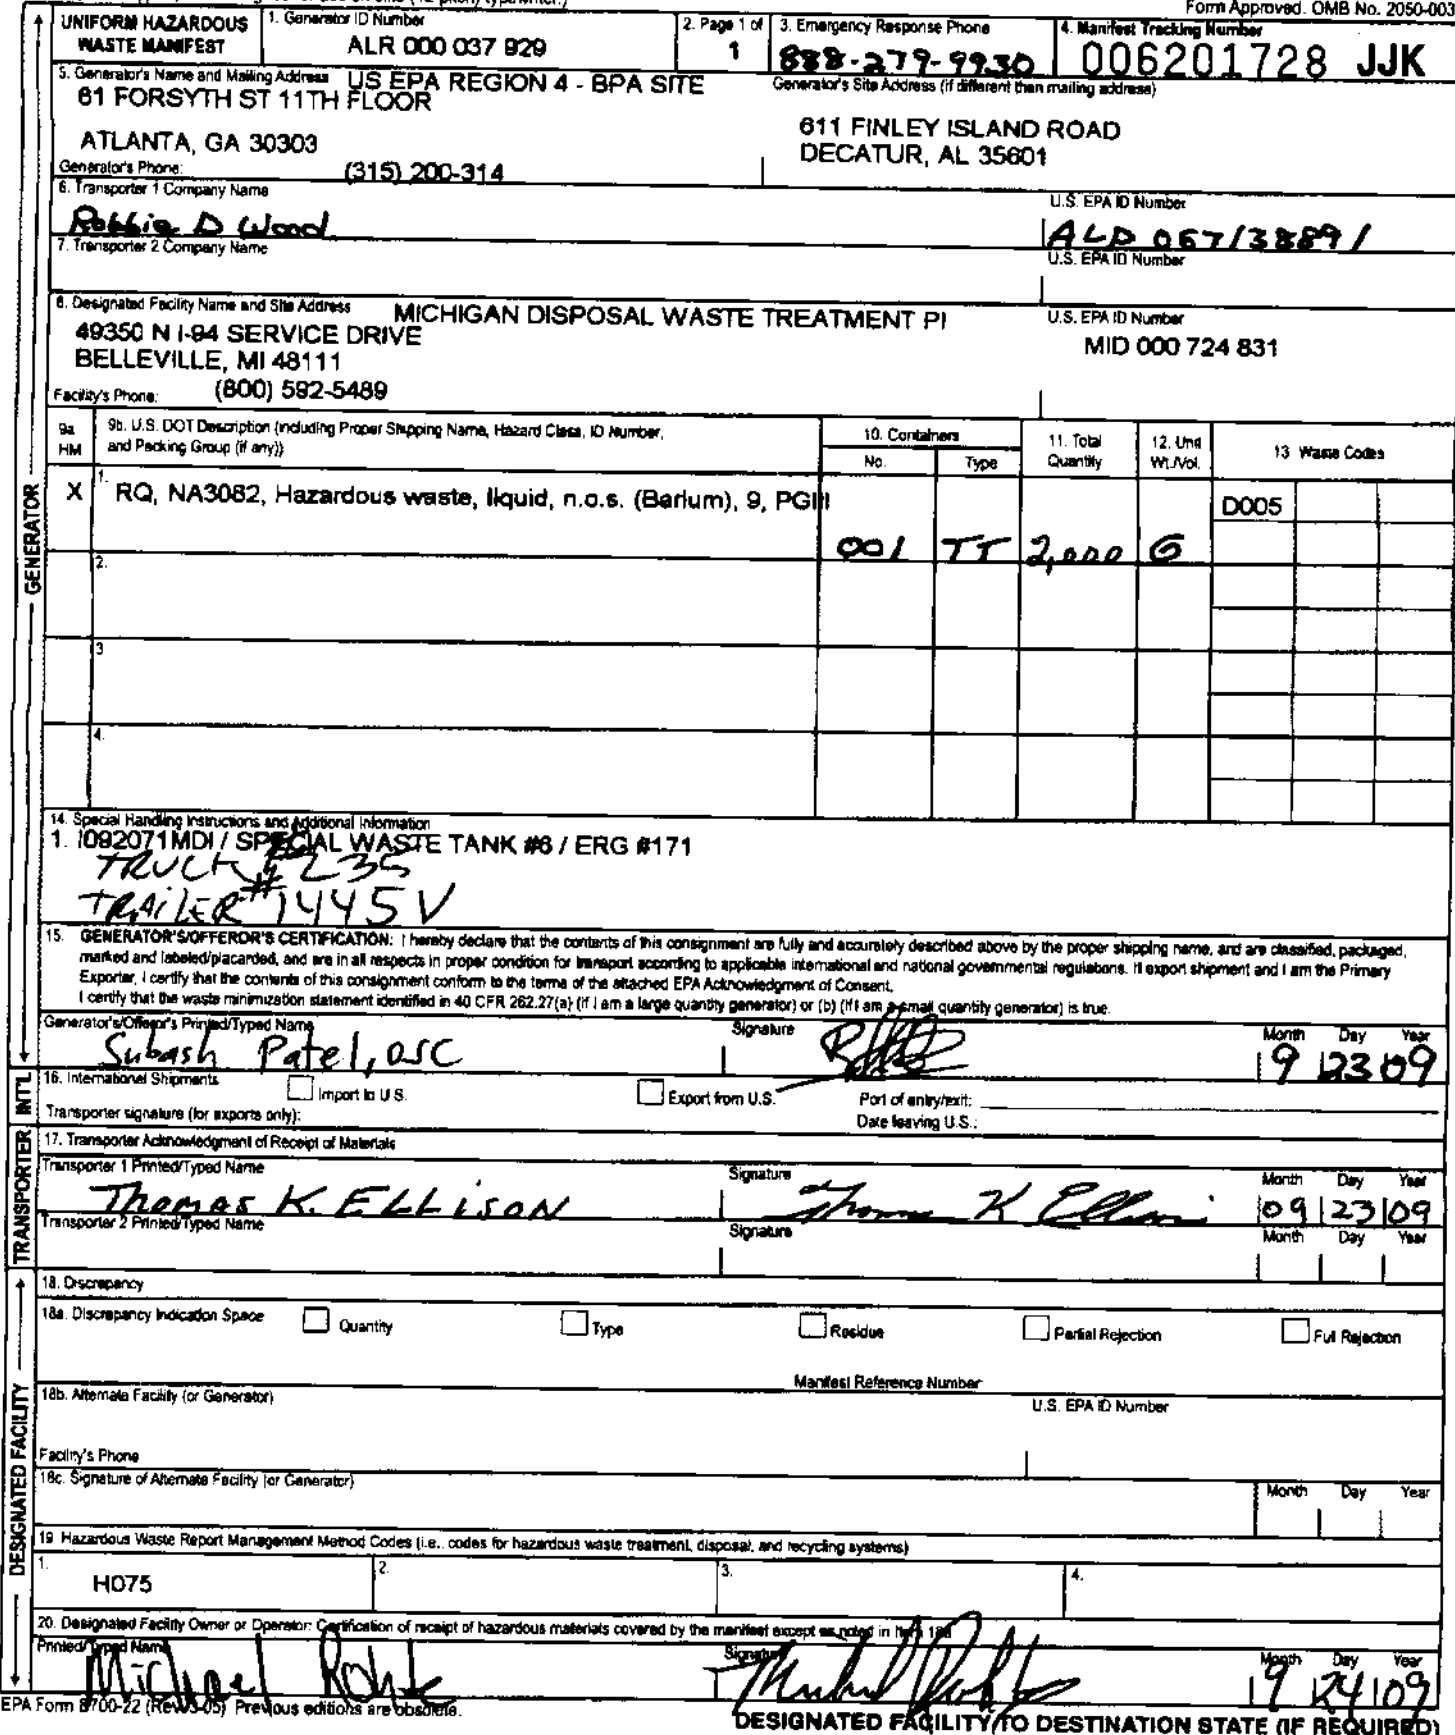 Form Approved. OMB No. 2050-003
UNIFORM HAZARDOUS WASTE MANIFEST
1. Generator ID Number
ALR 000 037 929
2. Page 1 of
1
3. Emergency Response Phone
888-279-9930
4. Manifest Tracking Number
006201728 JJK
5. Generator's Name and Mailing Address US EPA REGION 4 - BPA SITE
61 FORSYTH ST 11TH FLOOR
ATLANTA, GA 30303
Generator's Phone: (315) 200-314
Generator's Site Address (if different than mailing address)
611 FINLEY ISLAND ROAD
DECATUR, AL 35601
6. Transporter 1 Company Name
Robbie D Wood
U.S. EPA ID Number
ALD 067138891
7. Transporter 2 Company Name
U.S. EPA ID Number
8. Designated Facility Name and Site Address MICHIGAN DISPOSAL WASTE TREATMENT Pl
49350 N I-94 SERVICE DRIVE
BELLEVILLE, MI 48111
Facility's Phone: (800) 592-5489
U.S. EPA ID Number
MID 000 724 831
9a. HM
9b. U.S. DOT Description (including Proper Shipping Name, Hazard Class, ID Number, and Packing Group (if any))
10. Containers
No.
Type
11. Total Quantity
12. Unit Wt./Vol.
13 Waste Codes
X
1. RQ, NA3082, Hazardous waste, liquid, n.o.s. (Barium), 9, PGIII
001 TT 2,000 G
D005
2.
3
4.
14. Special Handling Instructions and Additional Information
1. I092071MDI / SPECIAL WASTE TANK #6 / ERG #171
TRUCK # 235
TRAILER # 1445 V
15. GENERATOR'S/OFFEROR'S CERTIFICATION: I hereby declare that the contents of this consignment are fully and accurately described above by the proper shipping name, and are classified, packaged,
marked and labeled/placarded, and are in all respects in proper condition for transport according to applicable international and national governmental regulations. If export shipment and I am the Primary
Exporter, I certify that the contents of this consignment conform to the terms of the attached EPA Acknowledgment of Consent.
I certify that the waste minimization statement identified in 40 CFR 262.27(a) (if I am a large quantity generator) or (b) (if I am a small quantity generator) is true.
Generator's/Offeror's Printed/Typed Name
Subash Patel, OSC
Signature
Month Day Year
9 23 09
16. International Shipments
Import to U.S.
Export from U.S.
Port of entry/exit:
Transporter signature (for exports only):
Date leaving U.S.:
17. Transporter Acknowledgment of Receipt of Materials
Transporter 1 Printed/Typed Name
Thomas K. ELLISON
Signature
Thomas K Ellison
Month Day Year
09 23 09
Transporter 2 Printed/Typed Name
Signature
Month Day Year
18. Discrepancy
18a. Discrepancy Indication Space
Quantity
Type
Residue
Partial Rejection
Full Rejection
Manifest Reference Number
18b. Alternate Facility (or Generator)
U.S. EPA ID Number
Facility's Phone
18c. Signature of Alternate Facility (or Generator)
Month Day Year
19 Hazardous Waste Report Management Method Codes (i.e., codes for hazardous waste treatment, disposal, and recycling systems)
1. H075
2.
3.
4.
20. Designated Facility Owner or Operator: Certification of receipt of hazardous materials covered by the manifest except as noted in Item 18a
Printed/Typed Name
Michael
Signature
Month Day Year
9 24 09
EPA Form 8700-22 (Rev. 3-05) Previous editions are obsolete.
DESIGNATED FACILITY TO DESTINATION STATE (IF REQUIRED)
GENERATOR
INT'L
TRANSPORTER
DESIGNATED FACILITY